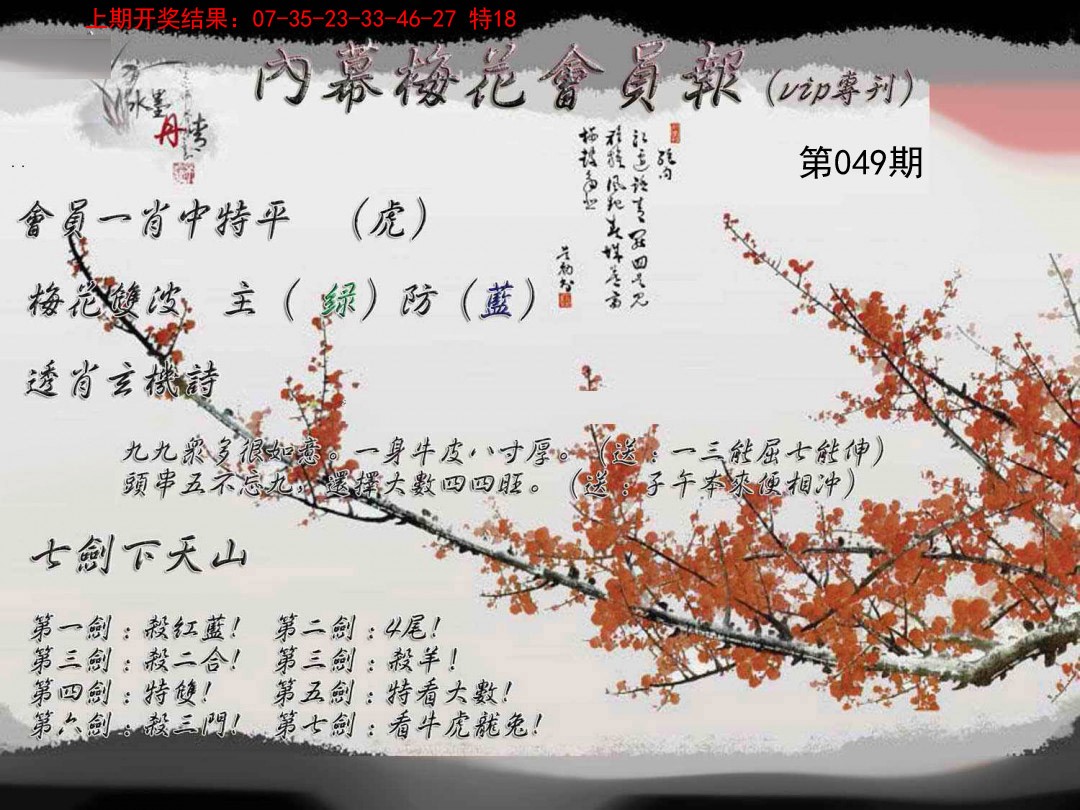 上期开奖结果：07-35-23-33-46-27 特18
內幕梅花會員報（vip專刊）
水墨
丹青
第049期
會員一肖中特平 （虎）
梅花雙波 主（绿）防（藍）
透肖玄機詩
九九衆多很如意。一身牛皮八寸厚。（送：一三能屈七能伸）
頭串五不忘九，選擇大數四四旺。（送：子午本來便相冲）
七劍下天山
第一劍：殺红藍！ 第二劍：4尾！
第三劍：殺二合！ 第三劍：殺羊！
第四劍：特雙！ 第五劍：特看大數！
第六劍：殺三門！ 第七劍：看牛虎龍兔！